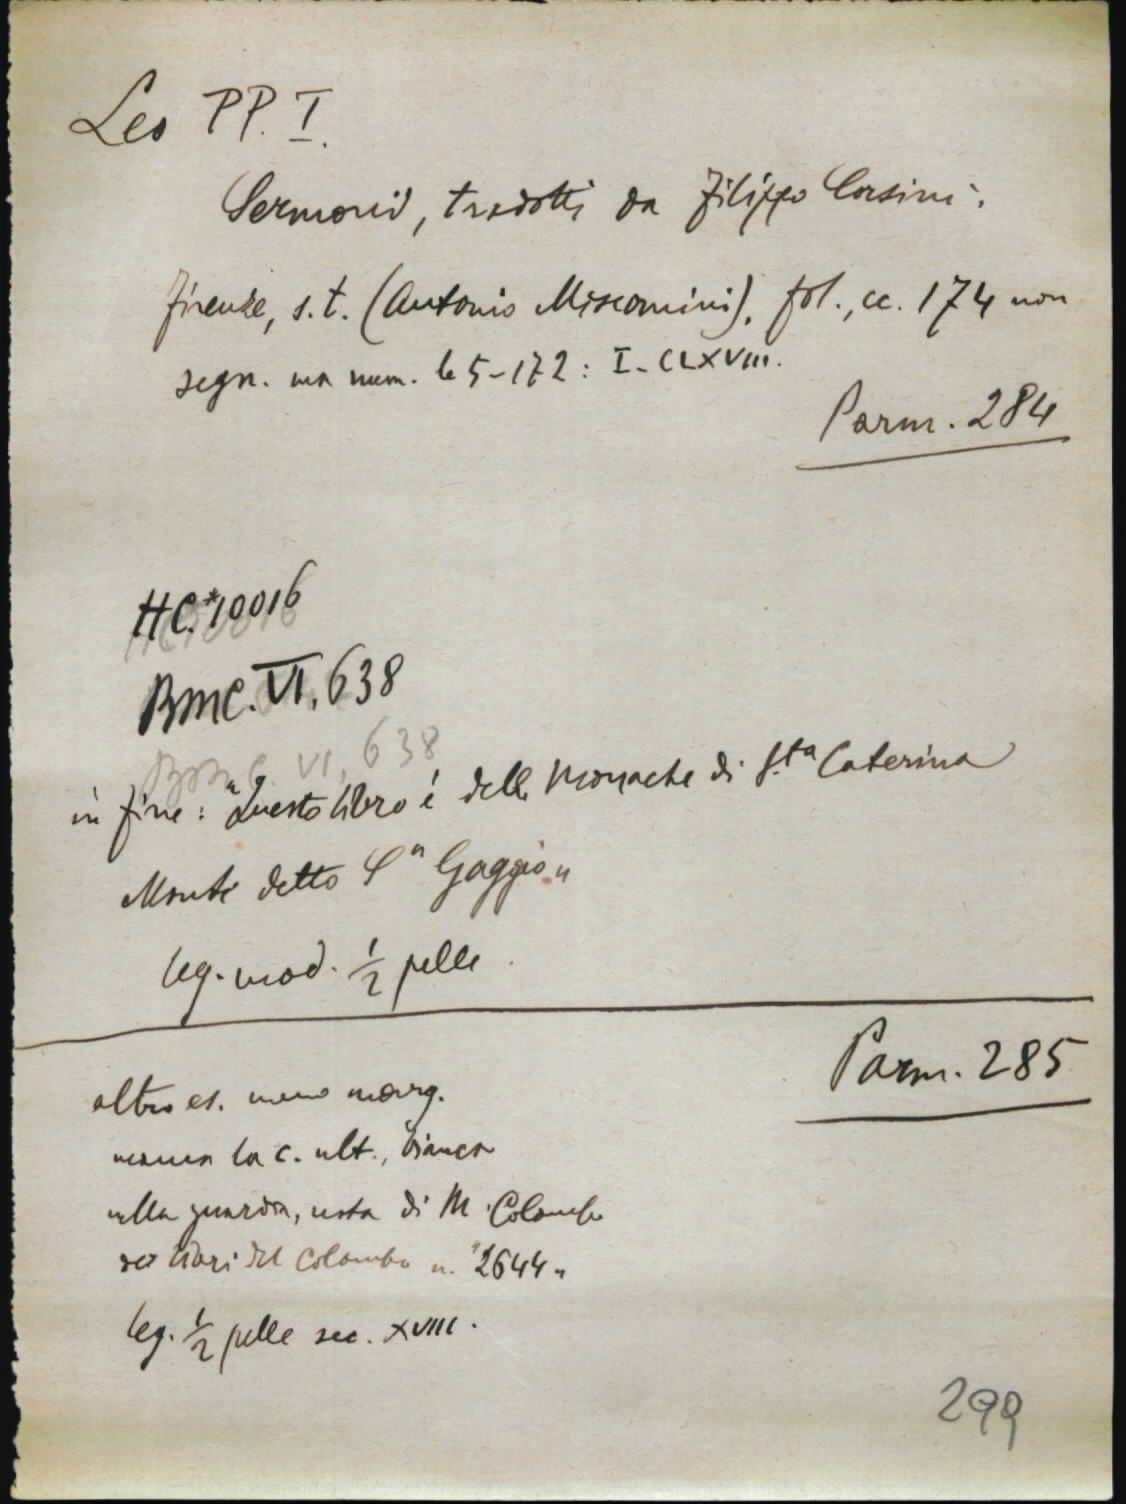 Leo PP. I.
Sermoni, tradotti da Filippo Corsini.
Firenze, s. t. (Antonio Miscomini), fol., cc. 174 non
segn. ma num. le 5-172: I-CLXVIII.
Parm. 284
HC.*10016
BMC. VI, 638
BMC. VI, 638
in fine: "Questo libro é delle Monache di S.ta Caterina
Monte detto S.n Gaggio"
leg. mod. ½ pelle
Parm. 285
altro es. meno marg.
manca la c. ult., bianca
nella guardia, nota di M. Colombo
dei libri del Colombo n. "2644"
leg. ½ pelle sec. XVIII.
299